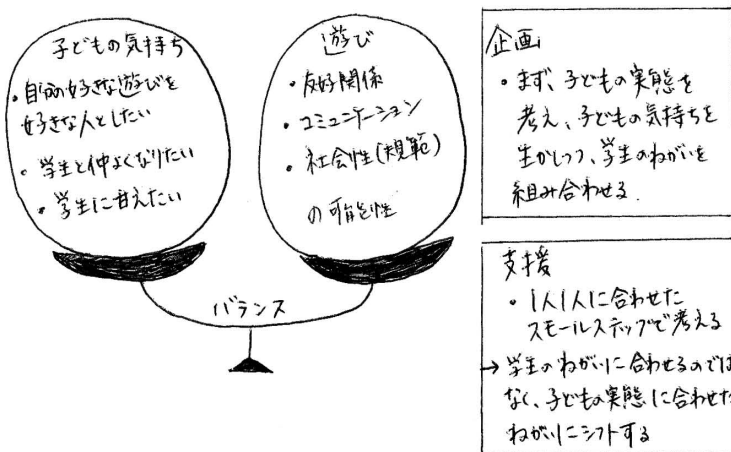 子どもの気持ち
・自分の好きな遊びを
好きな人としたい
・学生と仲よくなりたい
・学生に甘えたい
遊び
・友好関係
・コミュニケーション
・社会性(規範)
の可能性
バランス
企画
・まず、子どもの実態を
考え、子どもの気持ちを
生かしつつ、学生のねがいを
組み合わせる.
支援
・1人1人に合わせた
スモールステップで考える
→学生のねがいに合わせるのでは
なく、子どもの実態に合わせた
ねがいにシフトする